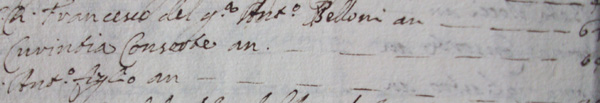 Francesco del q.m Ant.o Belloni an — — — 6
Curintia Consorte an. — — — — — 6
Ant.o figl.o an — — — — — —